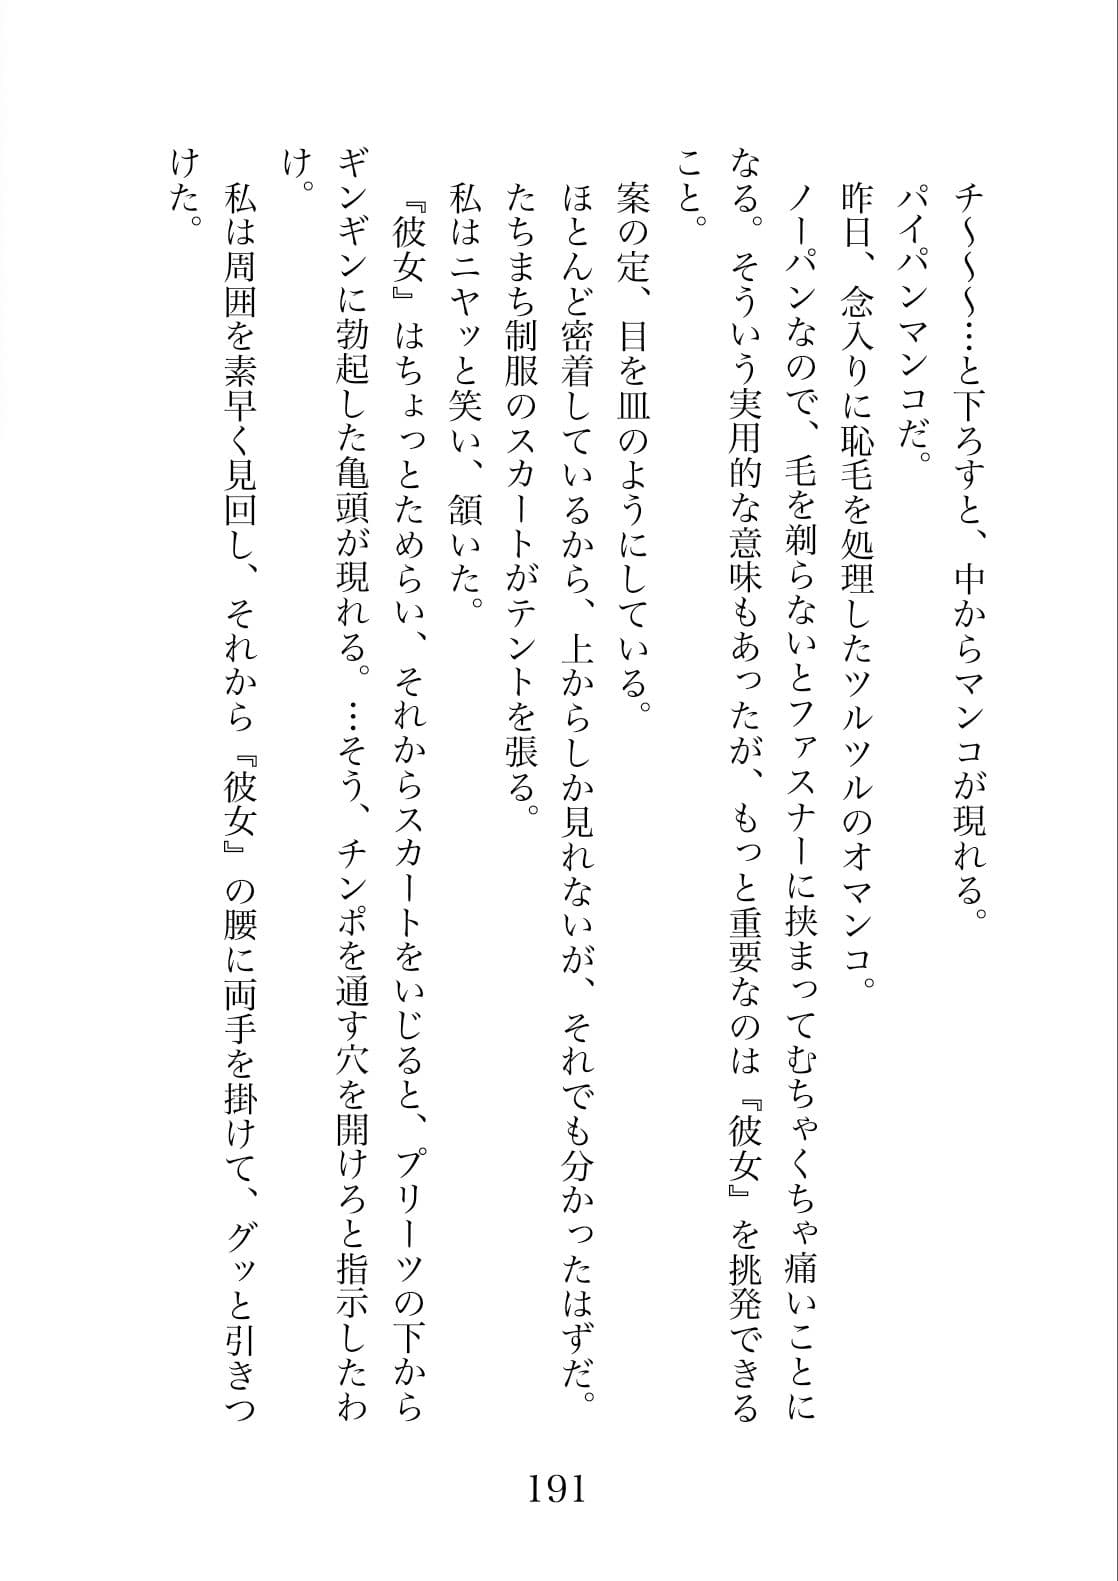 チ～～～…と下ろすと、中からマンコが現れる。
パイパンマンコだ。
昨日、念入りに恥毛を処理したツルツルのオマンコ。
ノーパンなので、毛を剃らないとファスナーに挟まってむちゃくちゃ痛いことに
なる。そういう実用的な意味もあったが、もっと重要なのは『彼女』を挑発できる
こと。
案の定、目を皿のようにしている。
ほとんど密着しているから、上からしか見れないが、それでも分かったはずだ。
たちまち制服のスカートがテントを張る。
私はニヤッと笑い、頷いた。
『彼女』はちょっとためらい、それからスカートをいじると、プリーツの下から
ギンギンに勃起した亀頭が現れる。…そう、チンポを通す穴を開けろと指示したわ
け。
私は周囲を素早く見回し、それから『彼女』の腰に両手を掛けて、グッと引きつ
けた。
191